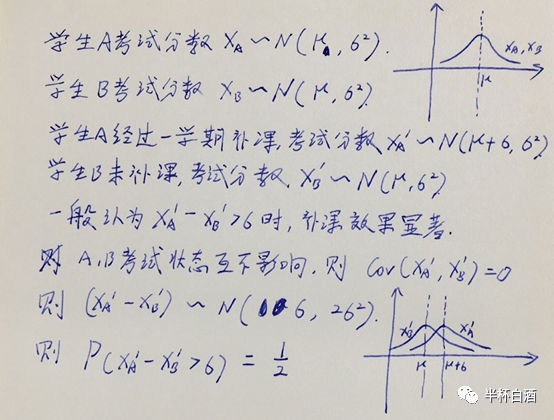 学生A考试分数 X_A ~ N(μ, 6²).
X_A, X_B
μ
学生B考试分数 X_B ~ N(μ, 6²).
学生A经过一学期补课,考试分数 X_A' ~ N(μ+6, 6²)
学生B未补课,考试分数, X_B' ~ N(μ, 6²)
一般认为 X_A' - X_B' > 6 时, 补课效果显著.
对 A,B考试状态互不影响, 则 Cov(X_A', X_B') = 0
则 (X_A' - X_B') ~ N(6, 26²).
则 P(X_A' - X_B' > 6) = 1/2
X_B' X_A'
μ μ+6
半杯白酒